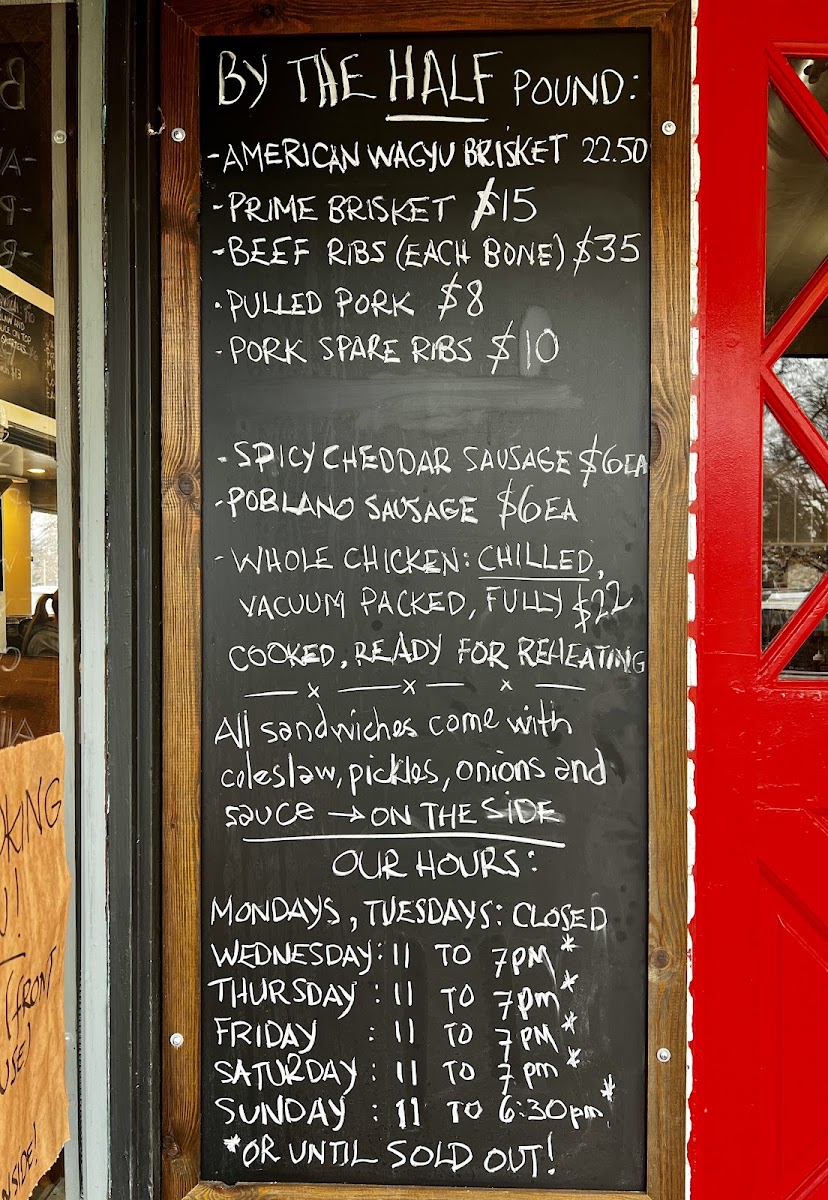 BY THE HALF POUND:
- AMERICAN WAGYU BRISKET 22.50
- PRIME BRISKET $15
- BEEF RIBS (EACH BONE) $35
- PULLED PORK $8
- PORK SPARE RIBS $10
- SPICY CHEDDAR SAUSAGE $6EA
- POBLANO SAUSAGE $6EA
- WHOLE CHICKEN: CHILLED,
VACUUM PACKED, FULLY $22
COOKED, READY FOR REHEATING
All sandwiches come with
coleslaw, pickles, onions and
sauce → ON THE SIDE
OUR HOURS:
MONDAYS, TUESDAYS: CLOSED
WEDNESDAY: 11 TO 7PM*
THURSDAY : 11 TO 7pm*
FRIDAY : 11 TO 7PM*
SATURDAY : 11 TO 7pm*
SUNDAY : 11 TO 6:30pm*
*OR UNTIL SOLD OUT!
(FRONT